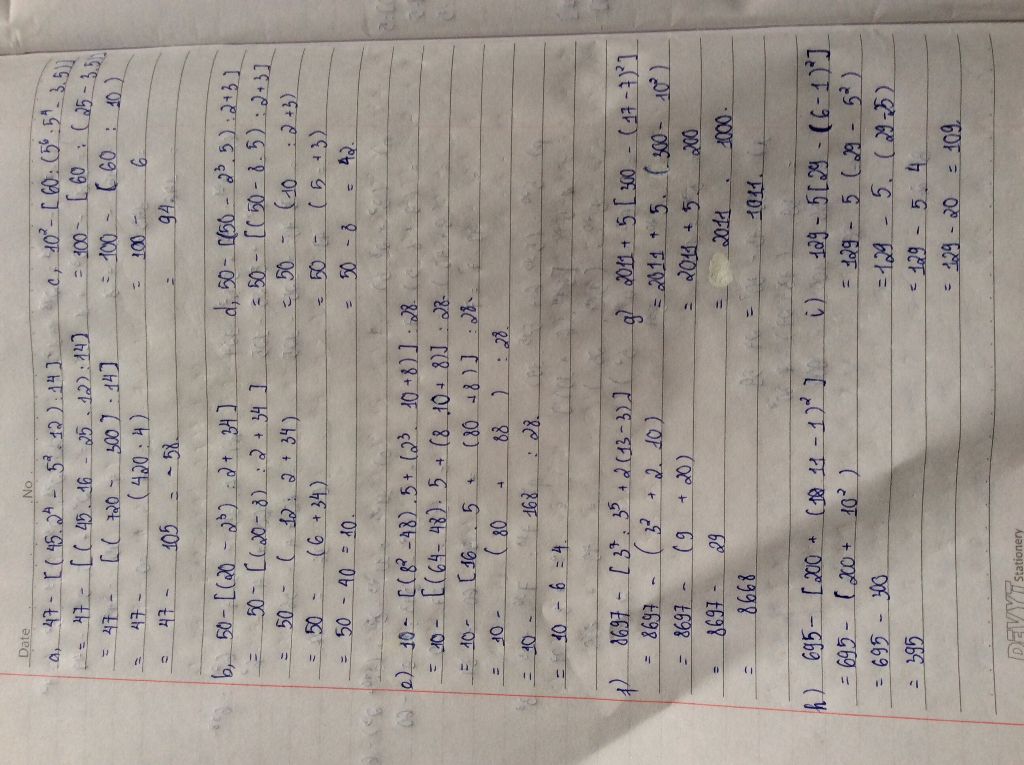 Date No
a, 47 - [(45.2⁴ - 5².12) : 14]
= 47 - [(45.16 - 25.12) : 14]
= 47 - [(720 - 300) : 14]
= 47 - (420 : 4)
= 47 - 105 = -58
c, 10² - [60 : (5⁶ : 5⁴ - 3.5)]
= 100 - [60 : (25 - 3.5)]
= 100 - (60 : 10)
= 100 - 6
= 94
b, 50 - [(20 - 2³) : 2 + 34]
= 50 - [(20 - 8) : 2 + 34]
= 50 - (12 : 2 + 34)
= 50 - (6 + 34)
= 50 - 40 = 10.
d, 50 - [(50 - 2³.5) : 2 + 3]
= 50 - [(50 - 8.5) : 2 + 3]
= 50 - (10 : 2 + 3)
= 50 - (5 + 3)
= 50 - 8 = 42
e) 10 - [(8² - 48).5 + (2³.10 + 8)] : 28
= 10 - [(64 - 48).5 + (8.10 + 8)] : 28
= 10 - [16.5 + (80 + 8)] : 28.
= 10 - (80 + 88) : 28.
= 10 - 168 : 28.
= 10 - 6 = 4.
f) 8697 - [3⁷ : 3⁵ + 2(13 - 3)]
= 8697 - (3² + 2.10)
= 8697 - (9 + 20)
= 8697 - 29
= 8668
g) 2011 + 5[300 - (17 - 7)²]
= 2011 + 5.(300 - 10²)
= 2011 + 5. 200
= 2011 . 1000.
= 1011.
h) 695 - [200 + (11 - 1)²]
= 695 - (200 + 10²)
= 695 - 300
= 395
i) 129 - 5[29 - (6 - 1)²]
= 129 - 5(29 - 5²)
= 129 - 5.(29 - 25)
= 129 - 5.4
= 129 - 20 = 109.
Stationery